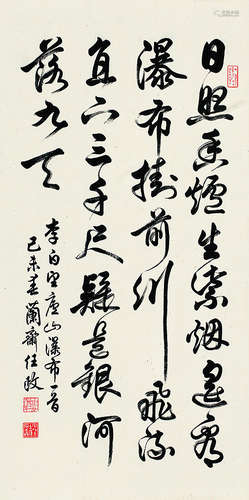 日照香爐生紫烟遥看
瀑布掛前川飛流
直下三千尺疑是銀河
落九天
李白望廬山瀑布一首
己未春蘭齋任政